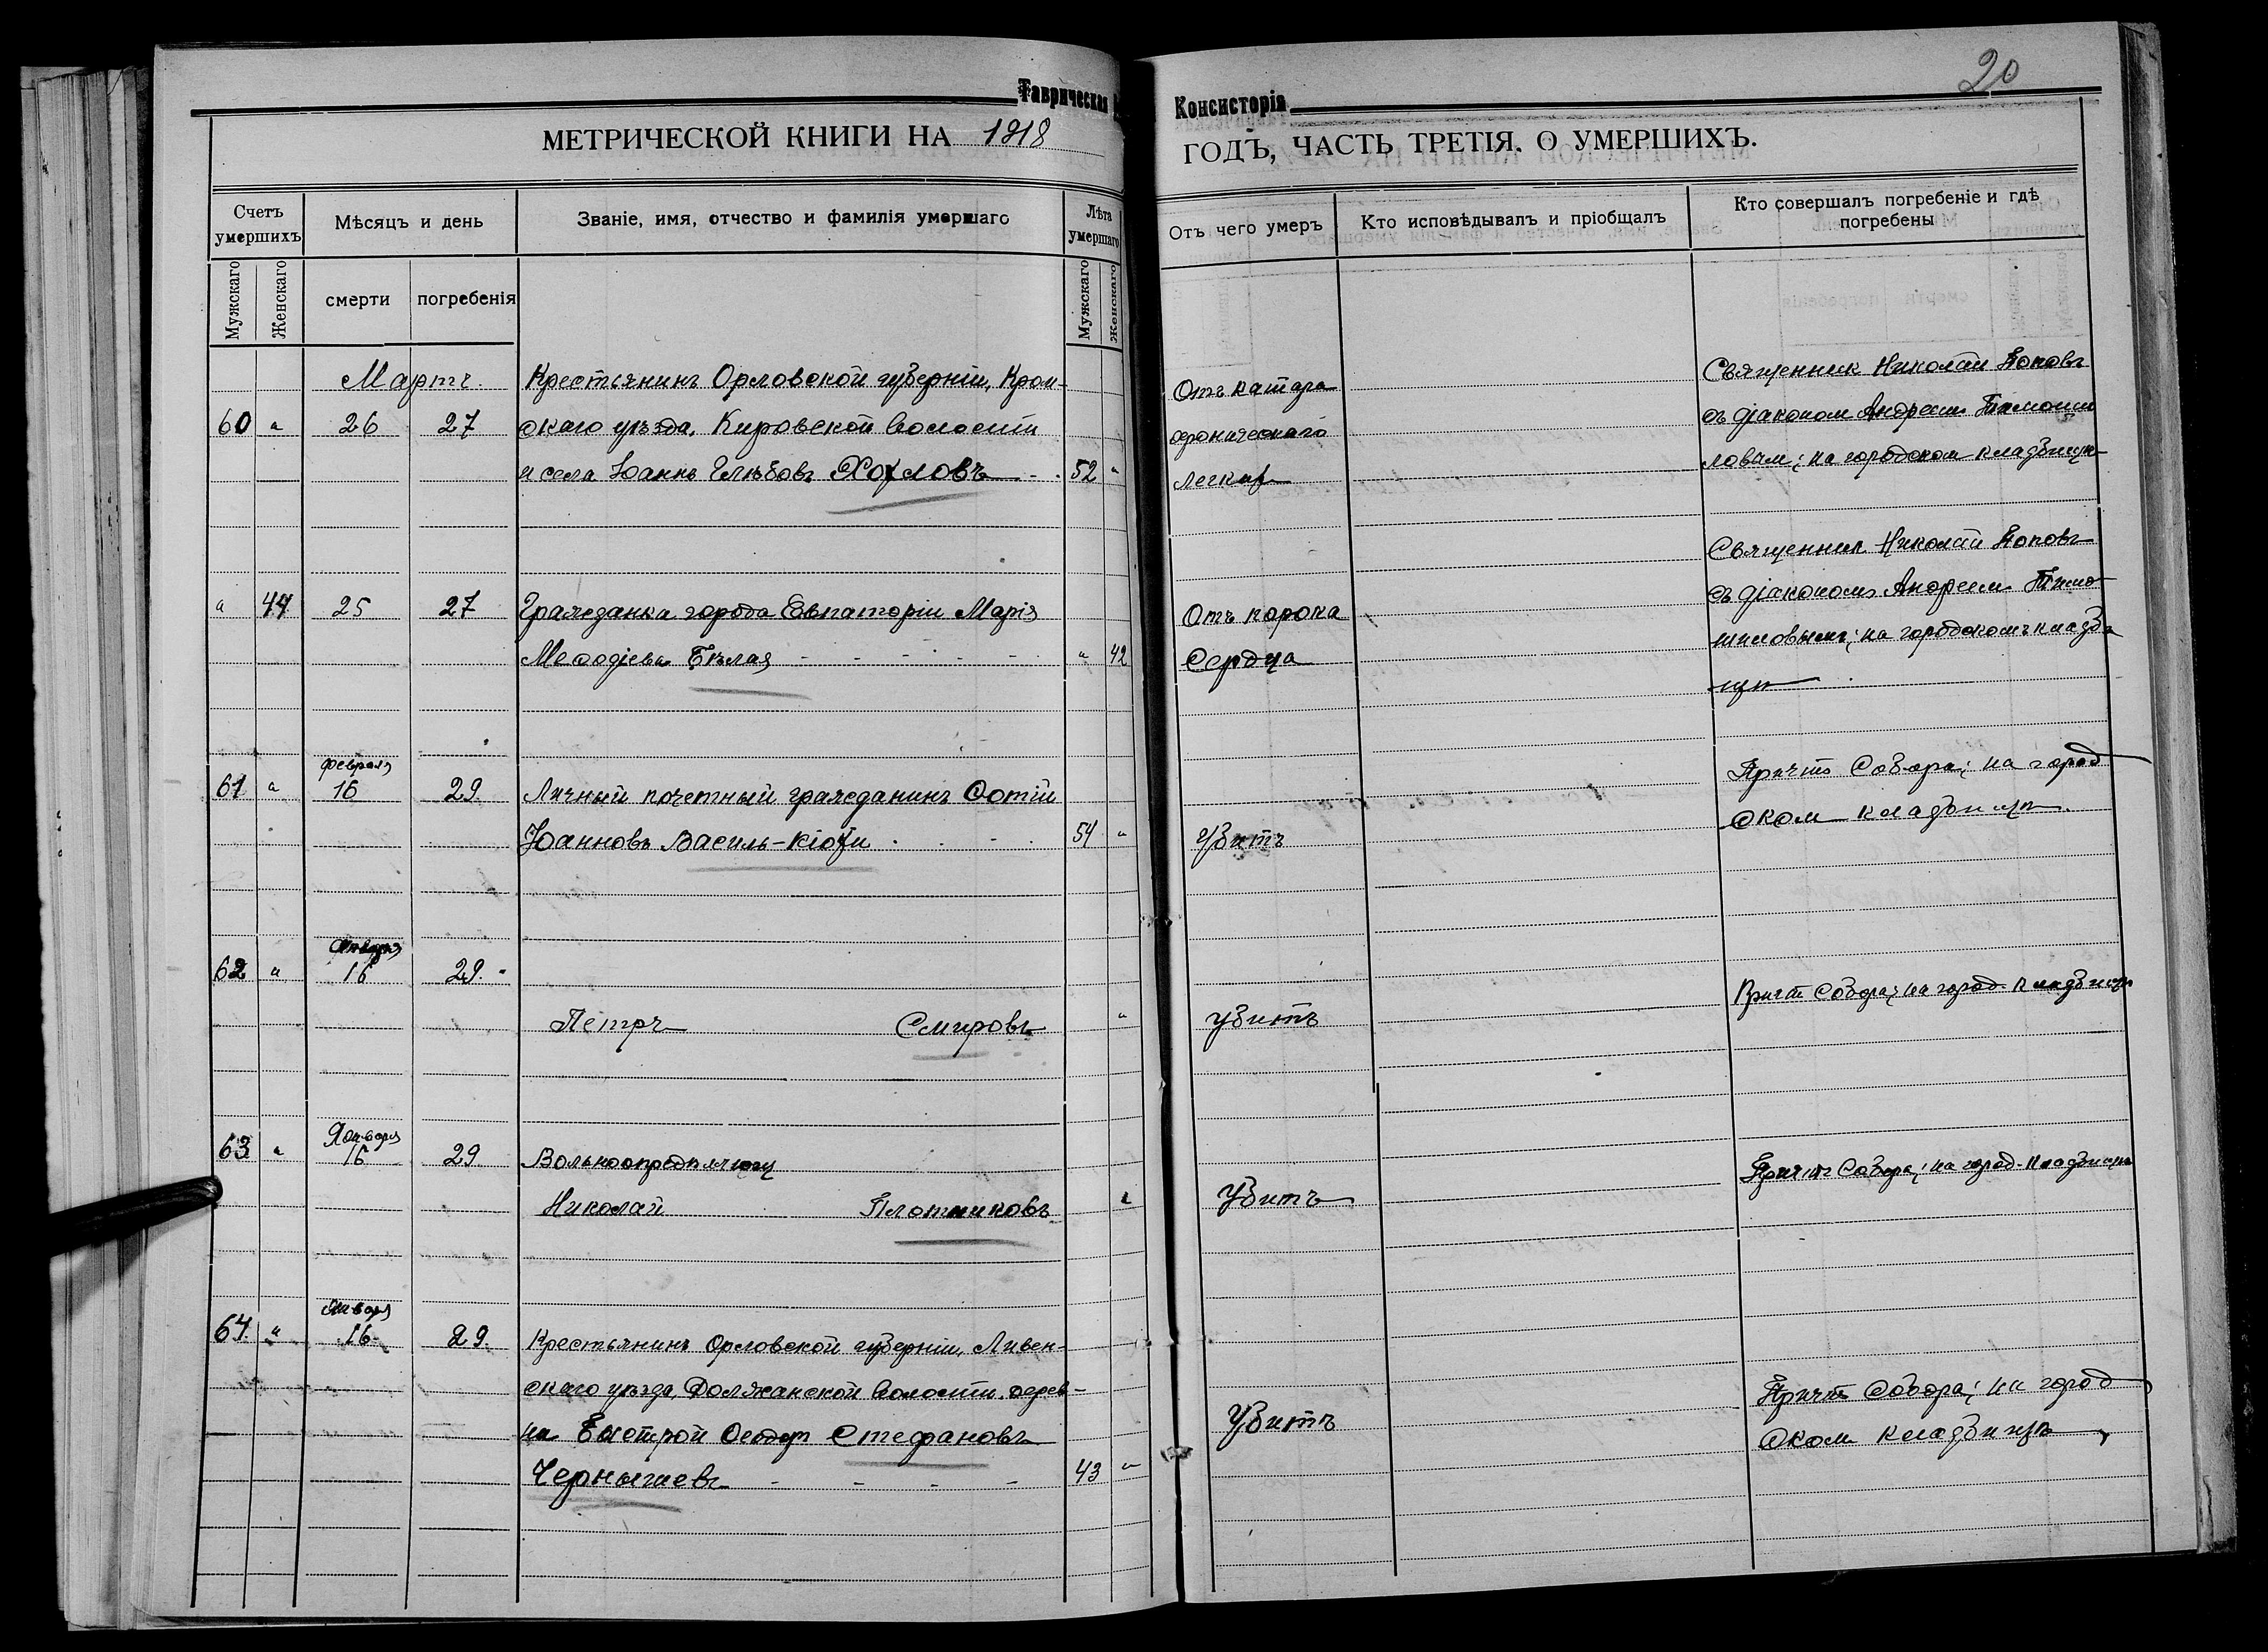 20
Таврическая
Консисторія
МЕТРИЧЕСКОЙ КНИГИ НА 1918
ГОДЪ, ЧАСТЬ ТРЕТІЯ. О УМЕРШИХЪ.
Счетъ умершихъ
Мѣсяцъ и день
Званіе, имя, отчество и фамилія умершаго
Лѣта умершаго
Отъ чего умеръ
Кто исповѣдывалъ и пріобщалъ
Кто совершалъ погребеніе и гдѣ
погребены
Мужскаго
Женскаго
смерти
погребенія
Мужскаго
Женскаго
Мартъ
Крестьянинъ Орловской губерніи, Кром-
60 " 26 27 скаго уѣзда, Кировской волости
и села Іоаннъ Глѣбовъ Хохловъ 52 "
Отъ катара
хроническаго
легких
Священник Николай Поповъ
съ діаконом Андреем Тимоши
ловым; на городском кладбищѣ
" 44 25 27 Гражданка города Евпаторіи Марія
Меѳодіева Бѣлая " 42
Отъ порока
Сердца
Священник Николай Поповъ
съ діакономъ Андреем Тимо
шиловымъ; на городскомъ кладби
щѣ
Февраля
61 " 16 29. Личный почетный гражданинъ Фотій
Іоанновъ Василь-Кіохи 54 "
Убитъ
Причтъ Собора; на город
ском кладбищѣ.
Января
62 " 16 29.
Петръ Смировъ "
убитъ
Причтъ Собора; на город кладбищѣ
Января
63 " 16 29 Вольноопредѣляющ
Николай Плотниковъ "
Убитъ
Причтъ Собора; на город. кладбищѣ
Января
64. " 16 29. Крестьянинъ Орловской губерніи, Ливен-
скаго уѣзда, Должанской волости, дерев-
ни Быстрой Ѳеодор Стефановъ
Чернышевъ 43 "
Убитъ
Причтъ Собора; на город
ском кладбищѣ